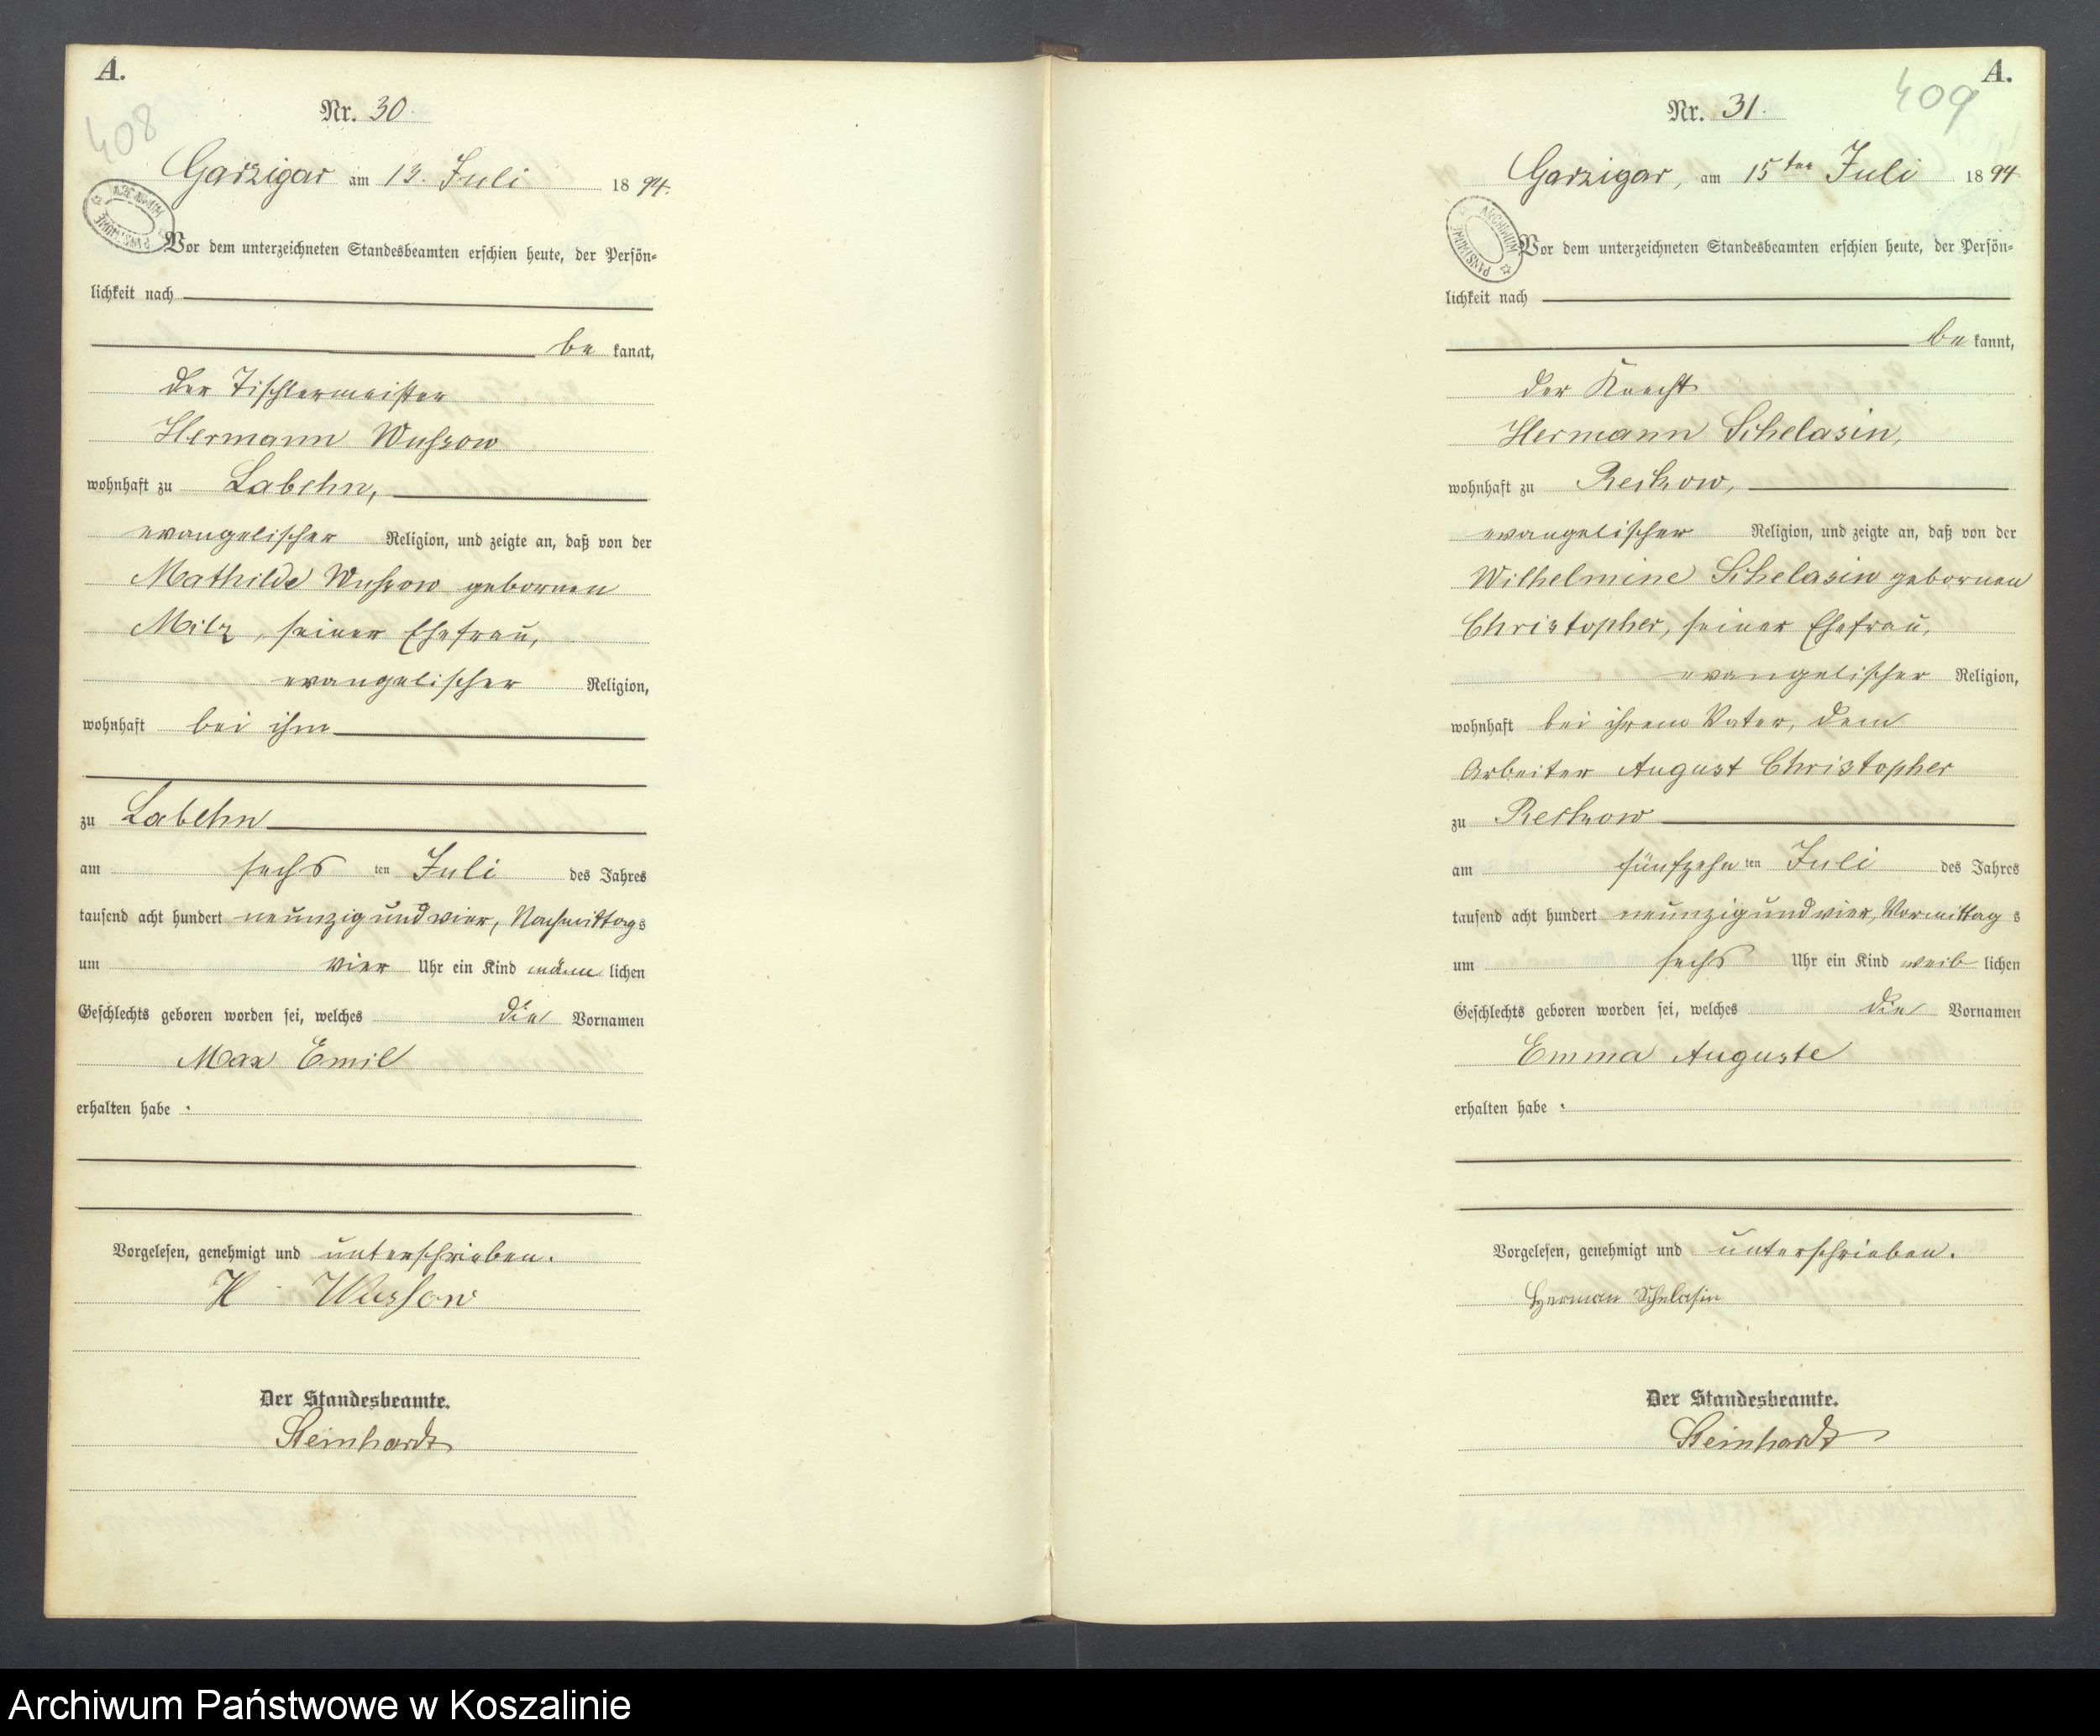 A.
408
Nr. 30.
Garzigar am 13. Juli 1894.
ARCHIWUM PAŃSTWOWE
Vor dem unterzeichneten Standesbeamten erschien heute, der Persön=
lichkeit nach
be kannt,
der Tischlermeister
Hermann Wussow
wohnhaft zu Labehn,
evangelischer Religion, und zeigte an, daß von der
Mathilde Wussow gebornen
Milz, seiner Ehefrau,
evangelischer Religion,
wohnhaft bei ihm
zu Labehn
am sechs ten Juli des Jahres
tausend acht hundert neunzig und vier, Nachmittags
um vier Uhr ein Kind männ lichen
Geschlechts geboren worden sei, welches die Vornamen
Max Emil
erhalten habe.
Vorgelesen, genehmigt und unterschrieben.
H Wussow
Der Standesbeamte.
Steinhardt
A.
409
Nr. 31.
Garzigar, am 15ten Juli 1894
ARCHIWUM PAŃSTWOWE
Vor dem unterzeichneten Standesbeamten erschien heute, der Persön=
lichkeit nach
be kannt,
der Knecht
Hermann Schelasin,
wohnhaft zu Reskow,
evangelischer Religion, und zeigte an, daß von der
Wilhelmine Schelasin gebornen
Christopher, seiner Ehefrau,
evangelischer Religion,
wohnhaft bei ihrem Vater, dem
Arbeiter August Christopher
zu Reskow
am fünfzehn ten Juli des Jahres
tausend acht hundert neunzig und vier, Vormittag s
um sechs Uhr ein Kind weib lichen
Geschlechts geboren worden sei, welches die Vornamen
Emma Auguste
erhalten habe.
Vorgelesen, genehmigt und unterschrieben.
Herman Schelasin
Der Standesbeamte.
Steinhardt
Archiwum Państwowe w Koszalinie